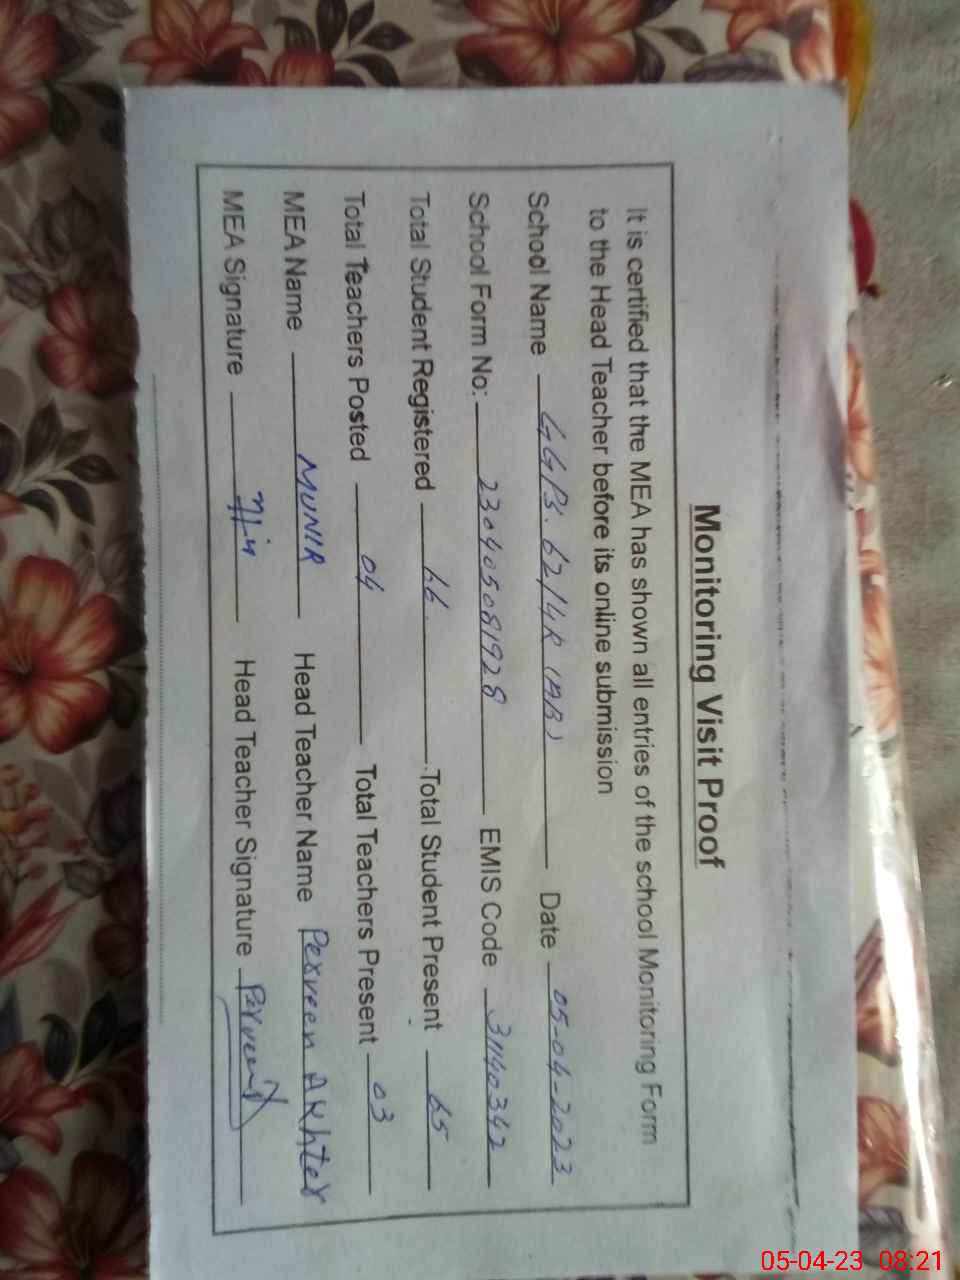 Monitoring Visit Proof
It is certified that the MEA has shown all entries of the school Monitoring Form
to the Head Teacher before its online submission
School Name GGPS. 62/4R (AB) Date 05-04-2023
School Form No: 230405081928 EMIS Code 31140342
Total Student Registered 66 Total Student Present 65
Total Teachers Posted 04 Total Teachers Present 03
MEA Name MUNIR Head Teacher Name Perveen AKhter
MEA Signature Head Teacher Signature Perveen
05-04-23 08:21